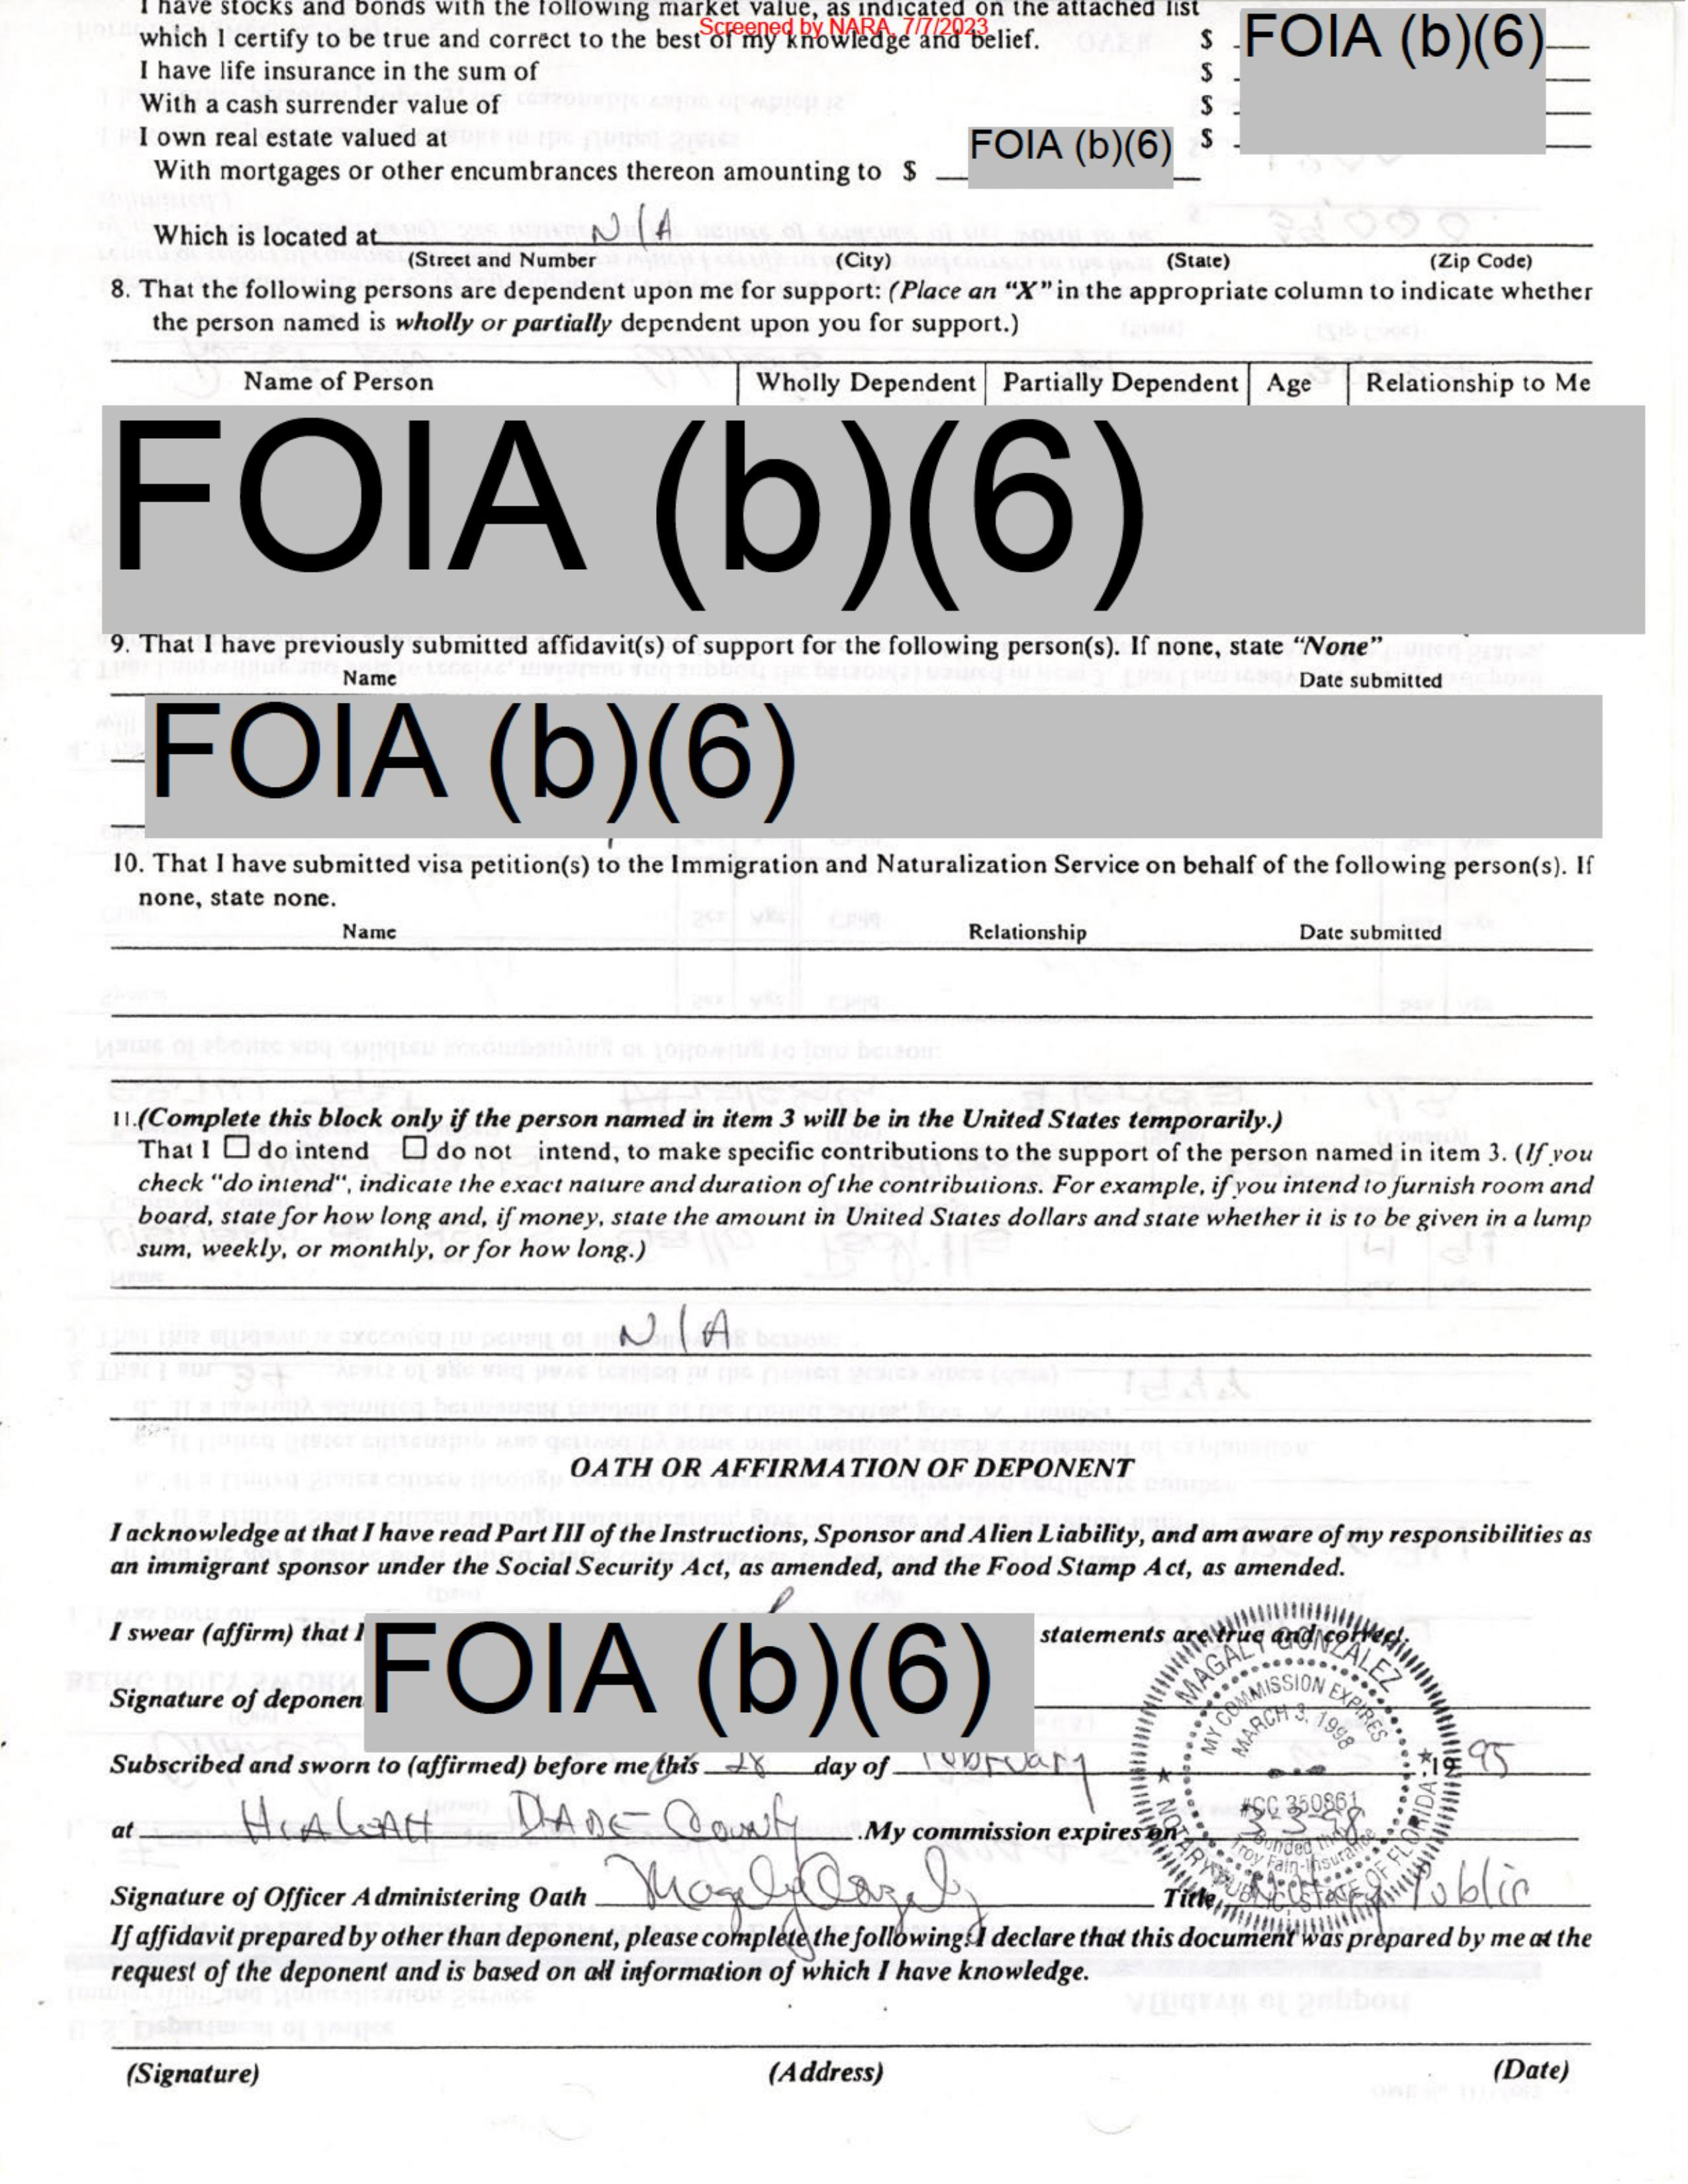 I have stocks and bonds with the following market value, as indicated on the attached list
Screened by NARA, 7/7/2023
which I certify to be true and correct to the best of my knowledge and belief. $ FOIA (b)(6)
I have life insurance in the sum of $
With a cash surrender value of $
I own real estate valued at $
With mortgages or other encumbrances thereon amounting to $ FOIA (b)(6)
Which is located at N/A
(Street and Number (City) (State) (Zip Code)
8. That the following persons are dependent upon me for support: (Place an “X” in the appropriate column to indicate whether
the person named is wholly or partially dependent upon you for support.)
Name of Person Wholly Dependent Partially Dependent Age Relationship to Me
FOIA (b)(6)
9. That I have previously submitted affidavit(s) of support for the following person(s). If none, state “None”
Name Date submitted
FOIA (b)(6)
10. That I have submitted visa petition(s) to the Immigration and Naturalization Service on behalf of the following person(s). If
none, state none.
Name Relationship Date submitted
11.(Complete this block only if the person named in item 3 will be in the United States temporarily.)
That I ☐ do intend ☐ do not intend, to make specific contributions to the support of the person named in item 3. (If you
check "do intend", indicate the exact nature and duration of the contributions. For example, if you intend to furnish room and
board, state for how long and, if money, state the amount in United States dollars and state whether it is to be given in a lump
sum, weekly, or monthly, or for how long.)
N/A
OATH OR AFFIRMATION OF DEPONENT
I acknowledge at that I have read Part III of the Instructions, Sponsor and Alien Liability, and am aware of my responsibilities as
an immigrant sponsor under the Social Security Act, as amended, and the Food Stamp Act, as amended.
I swear (affirm) that I FOIA (b)(6) statements are true and correct.
Signature of deponen
MAGALY GONZALEZ
MY COMMISSION EXPIRES
MARCH 3, 1998
#CC 350861
Bonded thru
Troy Fain-Insurance
NOTARY PUBLIC, STATE OF FLORIDA
Subscribed and sworn to (affirmed) before me this 28 day of February ,19 95
at HIALEAH DADE County .My commission expires on 3-3-98
Signature of Officer Administering Oath Magaly Gonzalez Title Notary Public
If affidavit prepared by other than deponent, please complete the following: I declare that this document was prepared by me at the
request of the deponent and is based on all information of which I have knowledge.
(Signature) (Address) (Date)